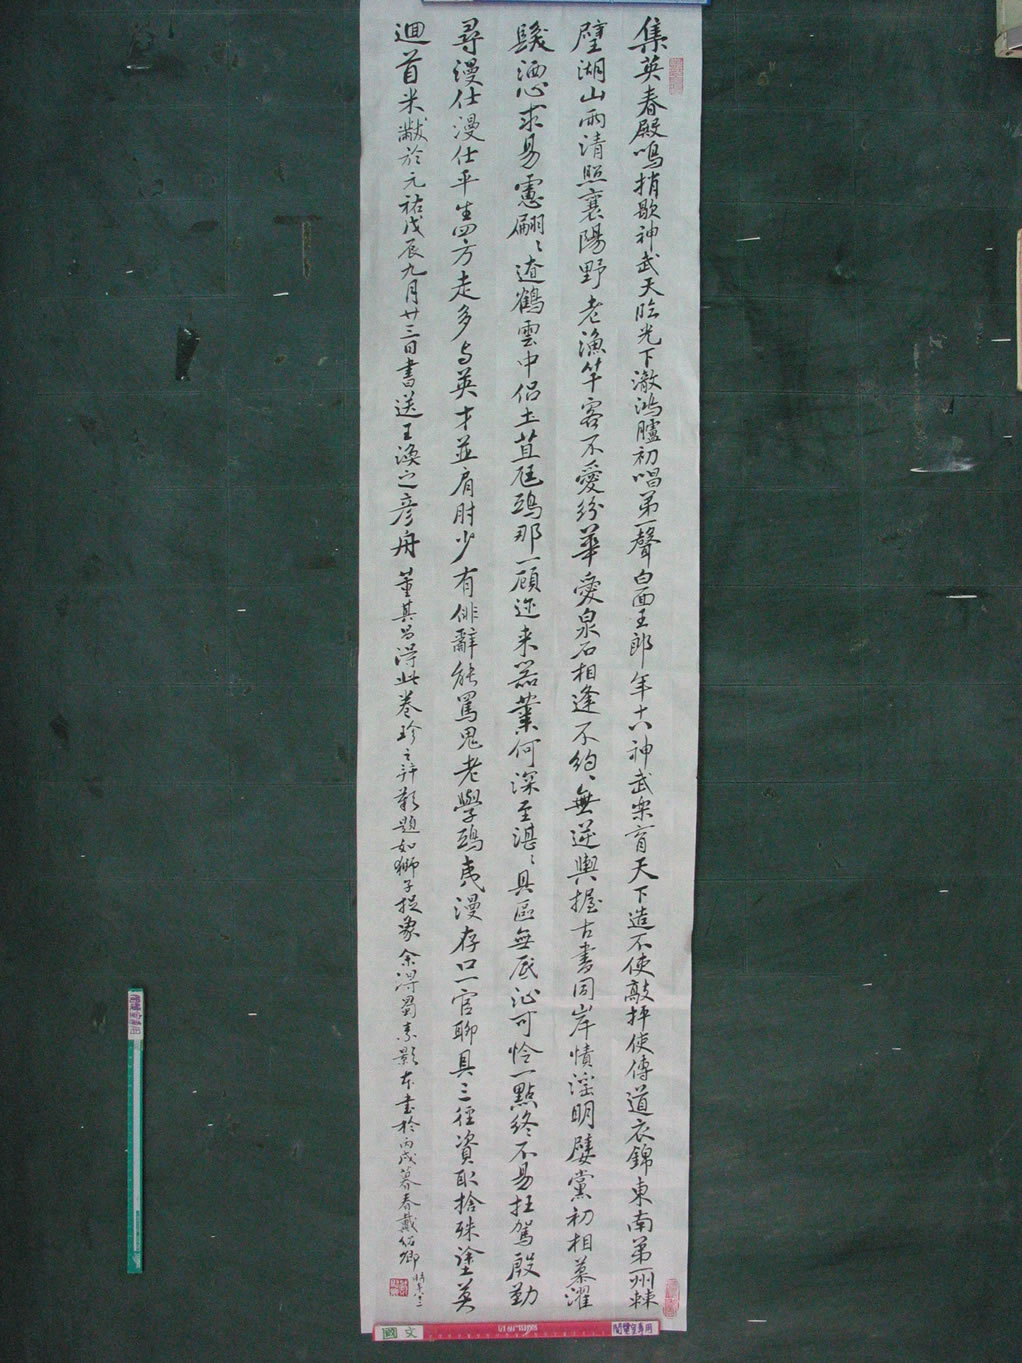 集英春殿鳴捎歇神武天臨光下澈鴻臚初唱第一聲白面王郎年十八神武樂育天下造不使敲抨使傳道衣錦東南第一州棘
璧湖山兩清照襄陽野老漁竿客不愛紛華愛泉石相逢不約約無逆輿握古書同岸幘淫朋嬖黨初相慕濯
髮洒心求易慮翩翩遼鶴雲中侶土苴尫鴟那一顧邇来器業何深至湛湛具區無底沚可怜一點終不易枉駕殷勤
尋漫仕漫仕平生四方走多与英才並肩肘少有俳辭能罵鬼老學鴟夷漫存口一官聊具三徑資取捨殊塗莫
迴首米黻於元祐戊辰九月廿三日書送王渙之彦舟 董其昌得此卷珍之并鄭題如獅子捉象 余得蜀素影本書於丙戌暮春戴紹卿
國文
閱覽室專用
閱覽室專用